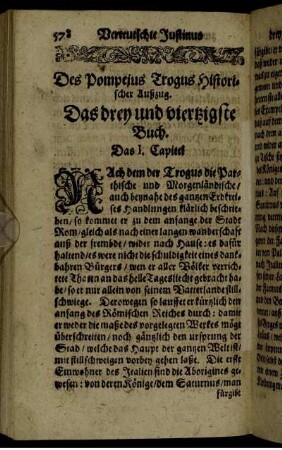 578 Verteutschte Justinus
Des Pompejus Trogus Histori-
scher Außzug.
Das drey und viertzigste
Buch.
Das I. Capitel
NAch dem der Trogus die Par-
thische und Morgenländische/
auch beynahe des gantzen Erdkrei-
ses Handlungen klärlich beschrie-
ben/ so kommet er zu dem anfange der Stadt
Rom/ gleich als nach einer langen wanderschaft
auß der frembde/ wider nach Hause: es dafür
haltend/ es were nicht die schuldigkeit eines dank-
bahren Bürgers/ wen er aller Völker verrich-
tete Thaten an das helle Tageslicht gebracht ha-
be/ so er nur allein von seinem Vaterlande still-
schwiege. Derowegen so lauffet er kürtzlich den
anfang des Römischen Reiches durch: damit
er weder die maße des vorgelegten Werkes mögt
überschreiten/ noch gäntzlich den ursprung der
Stad/ welche das Haupt der gantzen Welt ist/
mit stillschweigen vorbey gehen laße. Die erste
Einwohner des Italien sind die Aborigines ge-
wesen: von derem Könige/ dem Saturnus/ man
fürgibt